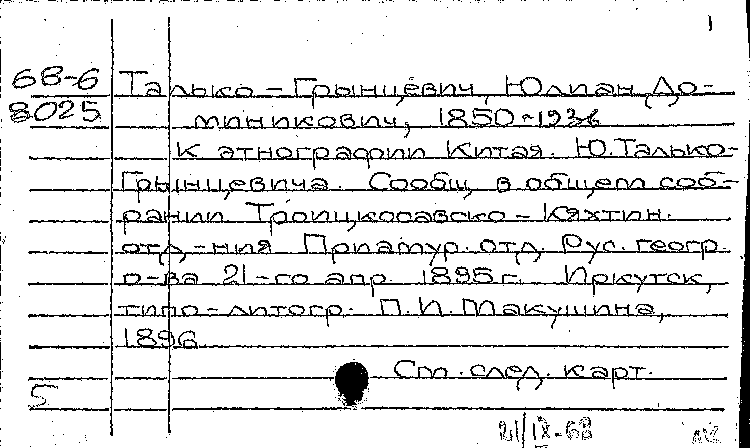 1
68-6 Талько-Грынцевич, Юлиан До-
8025 миникович, 1850-1936
К этнографии Китая. Ю. Талько-
Грынцевича. Сообщ. в общем соб-
рании Троицкосавско-Кяхтин.
отд-ния Приамур. отд. Рус. геогр.
о-ва 21-го апр. 1895 г. Иркутск,
типо-литогр. П. И. Макушина,
1896.
См. след. карт.
5
21/IX-68